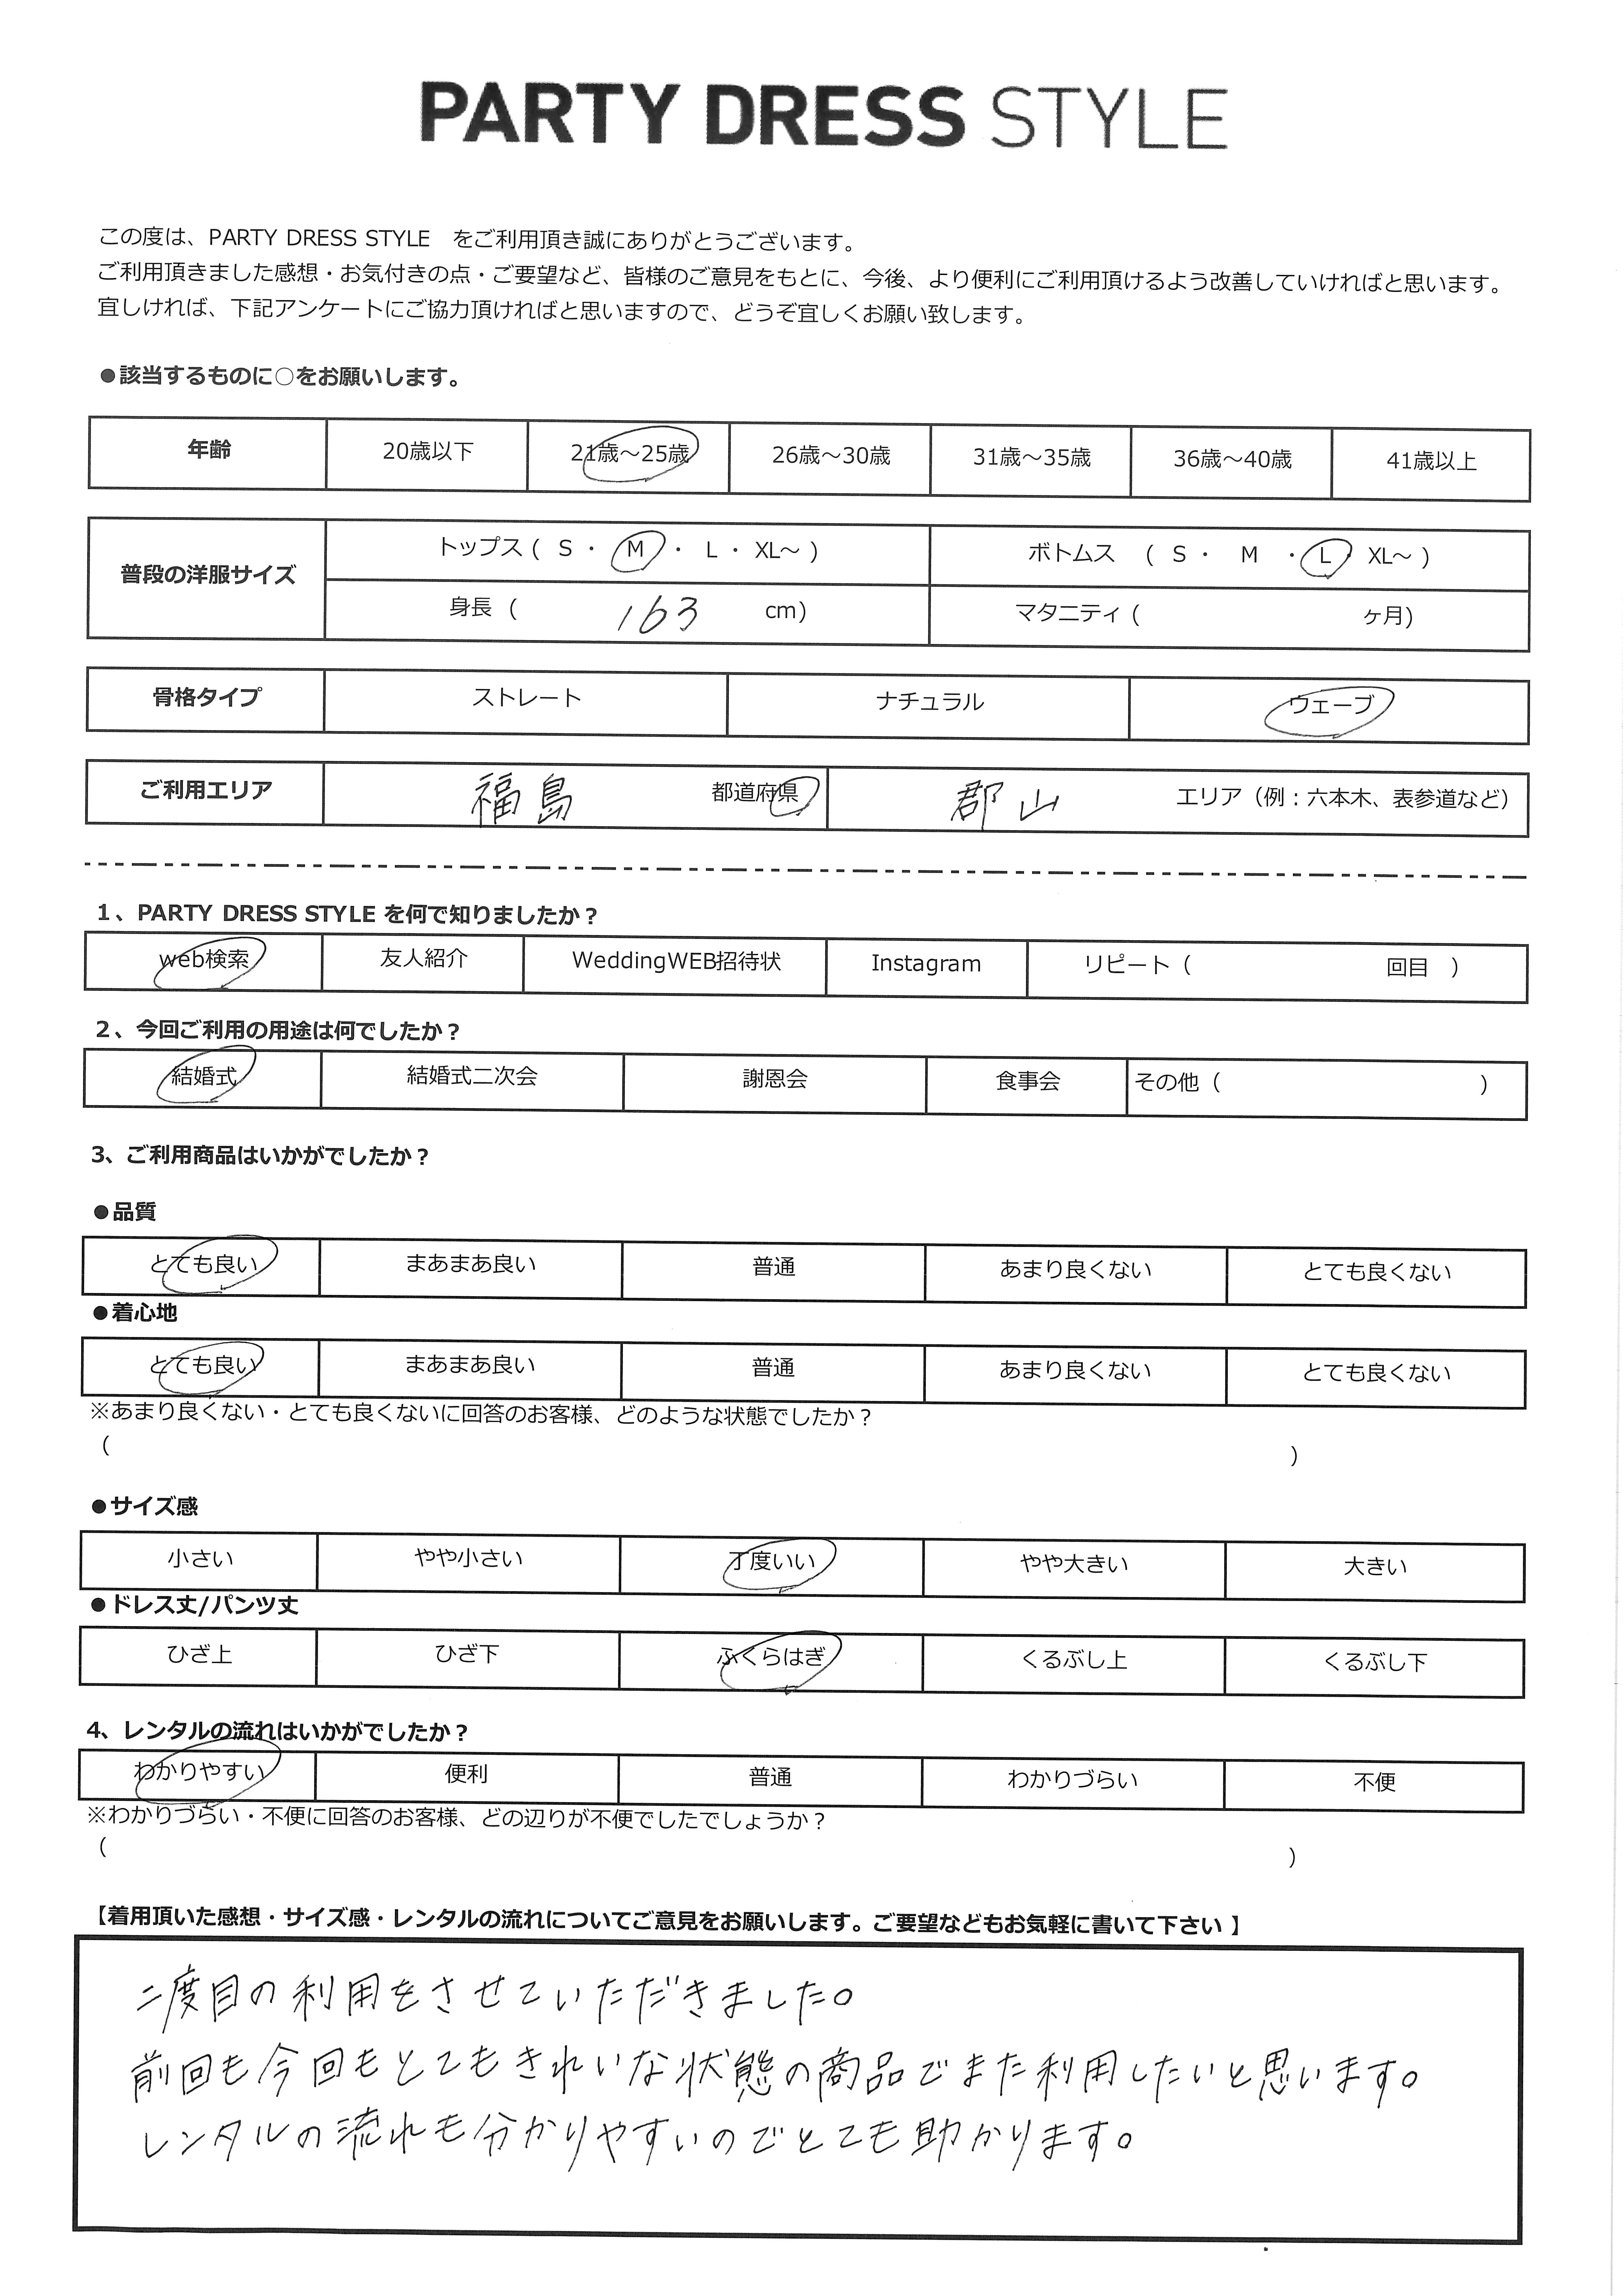 PARTY DRESS STYLE
この度は、PARTY DRESS STYLE をご利用頂き誠にありがとうございます。
ご利用頂きました感想・お気付きの点・ご要望など、皆様のご意見をもとに、今後、より便利にご利用頂けるよう改善していければと思います。
宜しければ、下記アンケートにご協力頂ければと思いますので、どうぞ宜しくお願い致します。
●該当するものに○をお願いします。
年齢 20歳以下 21歳～25歳 26歳～30歳 31歳～35歳 36歳～40歳 41歳以上
普段の洋服サイズ トップス ( S ・ M ・ L ・ XL～ ) ボトムス ( S ・ M ・ L ・ XL～ )
身長 ( 163 cm) マタニティ ( ヶ月)
骨格タイプ ストレート ナチュラル ウェーブ
ご利用エリア 福島 都道府県 郡山 エリア（例：六本木、表参道など）
1、PARTY DRESS STYLE を何で知りましたか？
web検索 友人紹介 WeddingWEB招待状 Instagram リピート（ 回目 ）
2、今回ご利用の用途は何でしたか？
結婚式 結婚式二次会 謝恩会 食事会 その他（ ）
3、ご利用商品はいかがでしたか？
●品質
とても良い まあまあ良い 普通 あまり良くない とても良くない
●着心地
とても良い まあまあ良い 普通 あまり良くない とても良くない
※あまり良くない・とても良くないに回答のお客様、どのような状態でしたか？
（ ）
●サイズ感
小さい やや小さい 丁度いい やや大きい 大きい
●ドレス丈/パンツ丈
ひざ上 ひざ下 ふくらはぎ くるぶし上 くるぶし下
4、レンタルの流れはいかがでしたか？
わかりやすい 便利 普通 わかりづらい 不便
※わかりづらい・不便に回答のお客様、どの辺りが不便でしたでしょうか？
（ ）
【着用頂いた感想・サイズ感・レンタルの流れについてご意見をお願いします。ご要望などもお気軽に書いて下さい 】
二度目の利用をさせていただきました。
前回も今回もとてもきれいな状態の商品でまた利用したいと思います。
レンタルの流れも分かりやすいのでとても助かります。